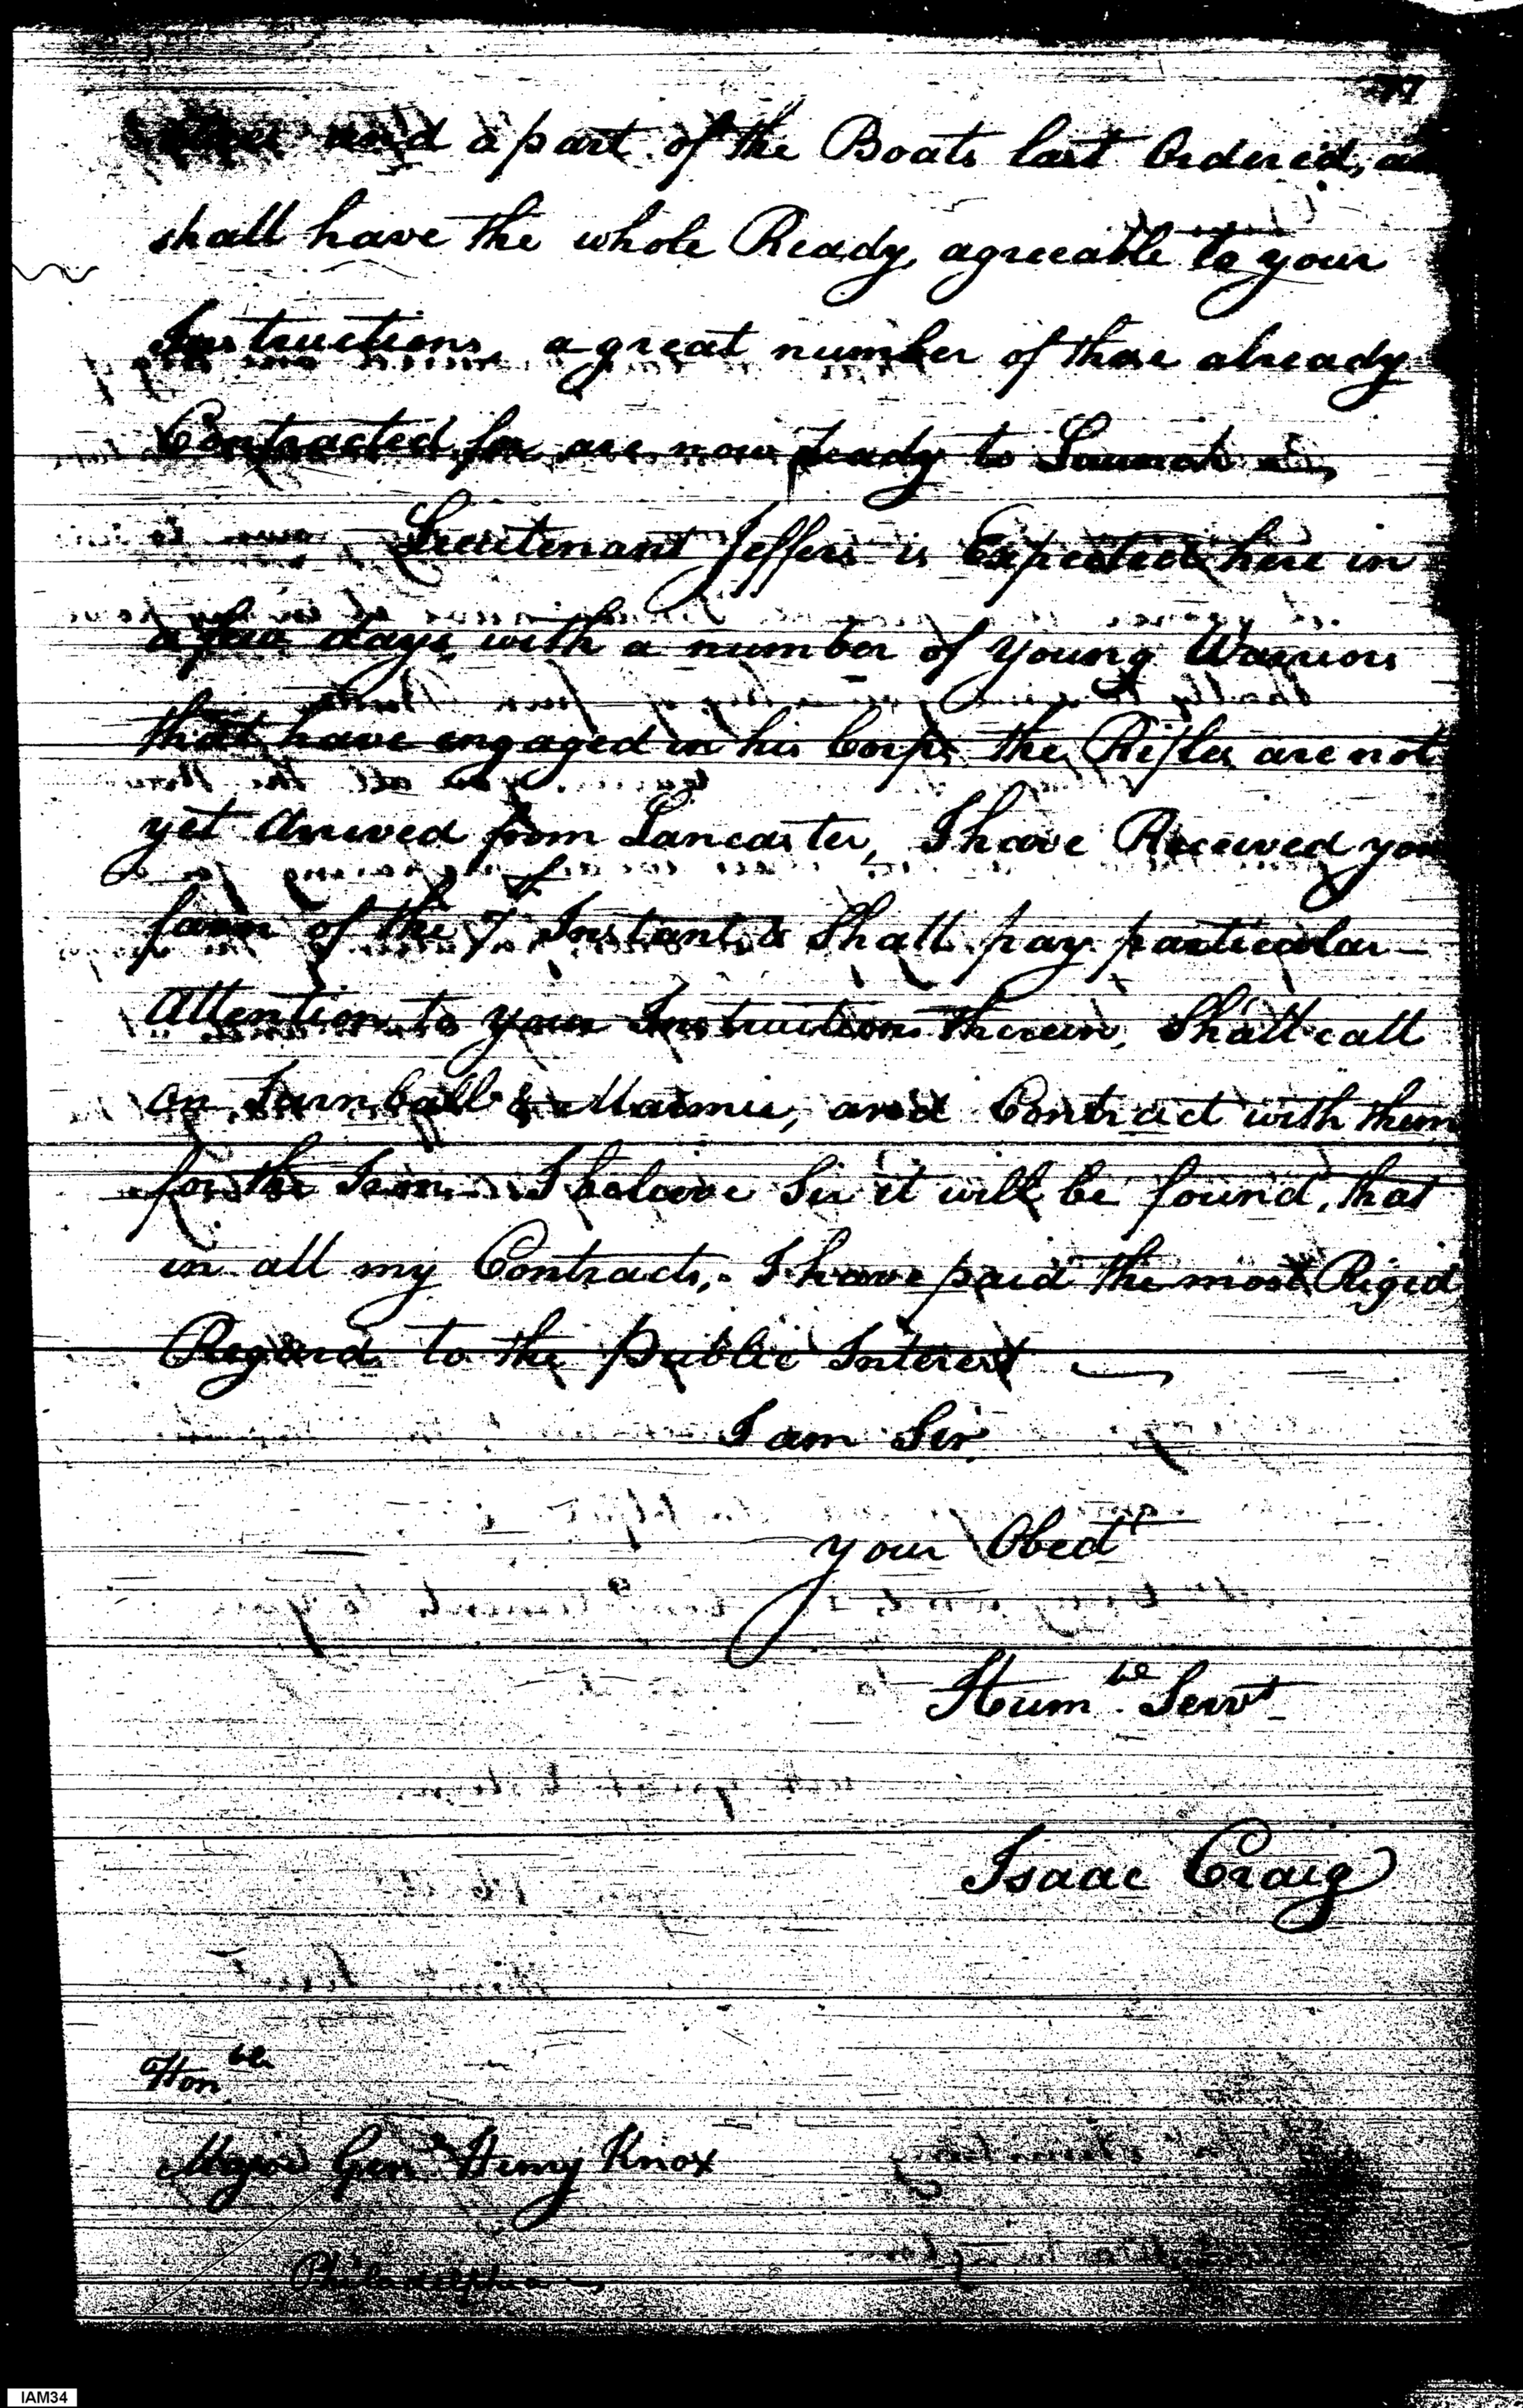 77
and a part of the Boats last Ordered, an
shall have the whole Ready, agreeable to your
Instructions, a great number of those already
Contracted for are now ready to Launch
Lieutenant Jeffers is Expected here in
a few days, with a number of young Warriors
that have engaged in his Corps the Rifles are not
yet Arrived from Lancaster, I have Received you
favor of the 7th Instant & Shall pay particular
Attention to your Instructions therein, Shall call
on Turnball & Marmie, and Contract with them
for the Iron. I beleave Sir it will be found, that
in all my Contracts, I have paid the most Rigid
Regard to the public Interest
I am Sir
your Obedt
Humble Servt
Isaac Craig
Honble
Major Genl Henry Knox
Philadelphia
IAM34